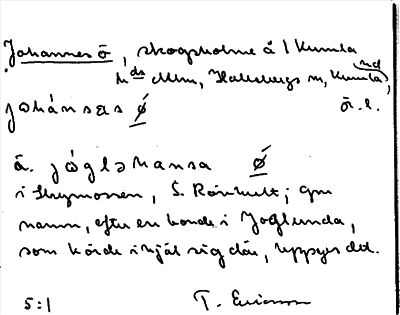 Johannes ö, skogsholme å l Kumla nd
h:ds Alm, Hallsbergs sn, Kumla
johánsas ø ö.l.
å. jógləhansa ø
i Skymossen, S. Rönhult; gm
namn, efter en bonde i Joglunda,
som körde ihjäl sig där, uppges det.
5:1 T. Ericsson